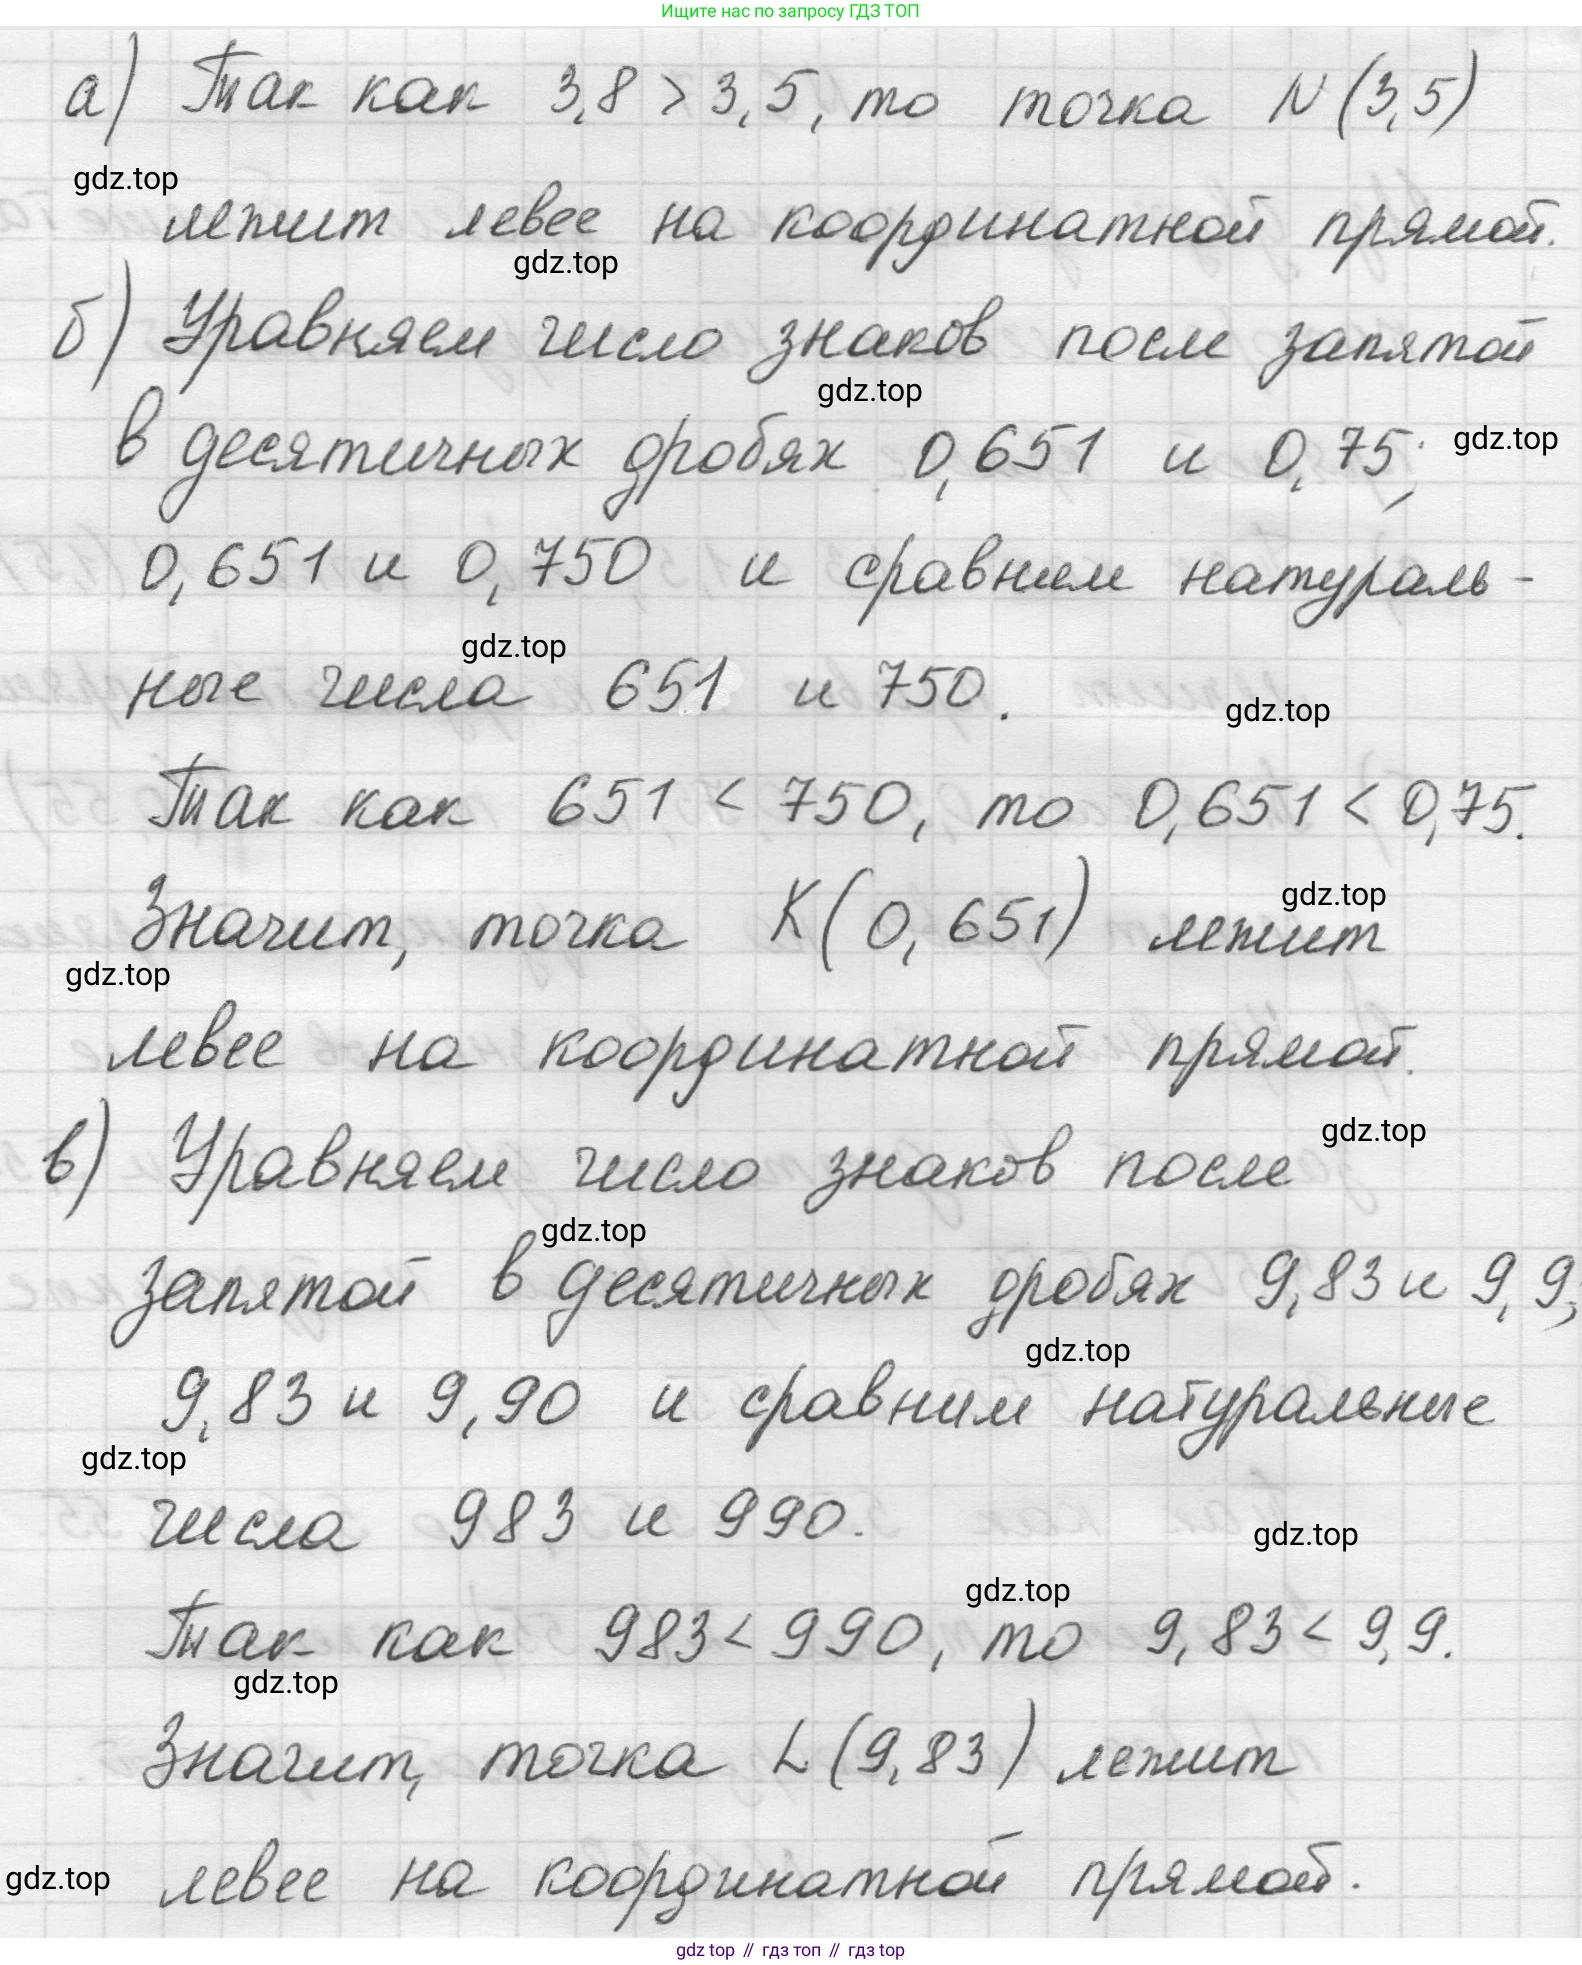 Ищите нас по запросу ГДЗ ТОП
а) Так как 3,8 > 3,5, то точка N(3,5)
gdz.top
лежит левее на координатной прямой.
gdz.top
б) Уравняем число знаков после запятой
gdz.top
в десятичных дробях 0,651 и 0,75; gdz.top
0,651 и 0,750 и сравним натураль-
gdz.top
ные числа 651 и 750.
gdz.top
Так как 651 < 750, то 0,651 < 0,75.
gdz.top
Значит, точка K(0,651) лежит
gdz.top
левее на координатной прямой.
gdz.top
в) Уравняем число знаков после
gdz.top
запятой в десятичных дробях 9,83 и 9,9;
gdz.top
9,83 и 9,90 и сравним натуральные
gdz.top
числа 983 и 990.
gdz.top
gdz.top
Так как 983 < 990, то 9,83 < 9,9.
gdz.top
Значит, точка L(9,83) лежит
gdz.top левее на координатной прямой.
gdz top // гдз топ // гдз top